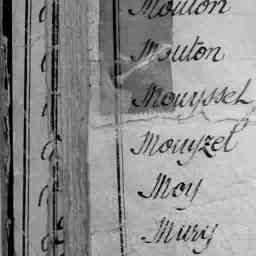 Mouton
Mouton
Mouyssel
Mouyzet
Moy
Mury